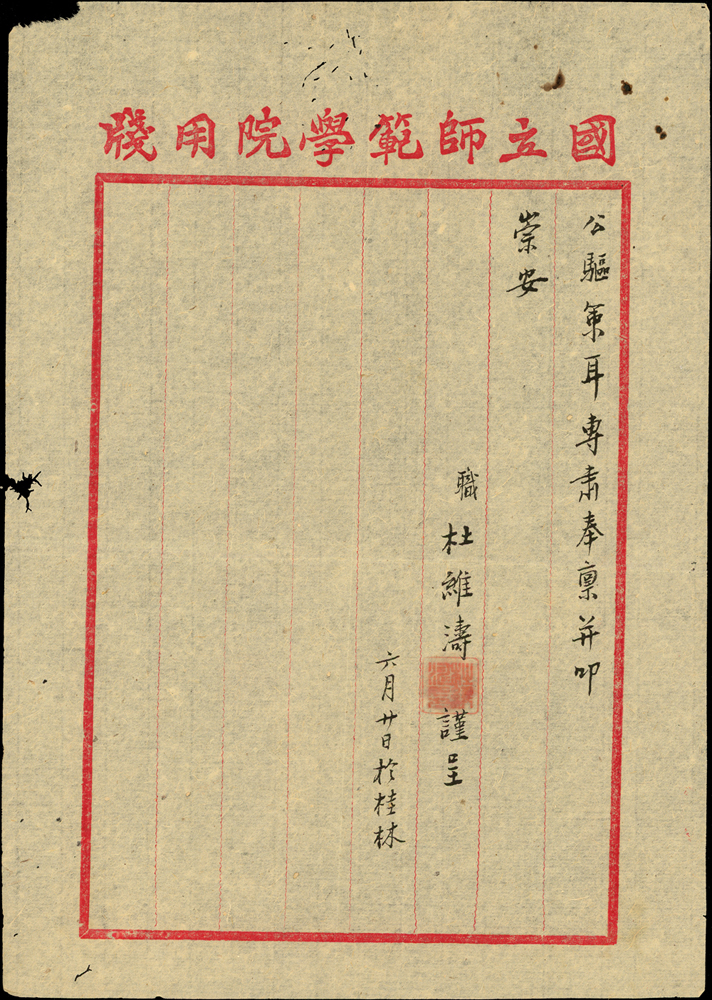 國立師範學院用牋
公驅策耳專肅奉稟并叩
崇安
職杜維濤謹呈
六月廿日於桂林